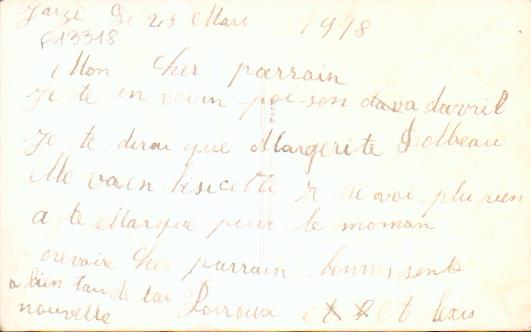 Jarzé Le 28 Mars 1918
F13318
Mon cher parrain
Je te en voi un poi son dava davril
Je te dirai que Margerite Dolbeau
Me va en bisicette Je ne voi plu rien
a te Marque pour le moman
orevoire cher parrain bonne sente
a bien tau de tai
nouvelle
Loiroux Alexis